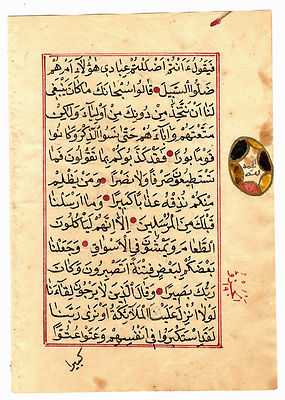 فَيَقُولُ ءَاَنْتُمْ اَضْلَلْتُمْ عِبَادِى هٰؤُلَاءِ اَمْ هُمْ
ضَلُّوا السَّبِيلَ قَالُوا سُبْحَانَكَ مَا كَانَ يَنْبَغِى
لَنَا اَنْ نَتَّخِذَ مِنْ دُونِكَ مِنْ اَوْلِيَاءَ وَلٰكِنْ
مَتَّعْتَهُمْ وَاٰبَاءَهُمْ حَتّٰى نَسُوا الذِّكْرَ وَكَانُوا
قَوْمًا بُورًا فَقَدْ كَذَّبُوكُمْ بِمَا تَقُولُونَ فَمَا
تَسْتَطِيعُونَ صَرْفًا وَلَا نَصْرًا وَمَنْ يَظْلِمْ
مِنْكُمْ نُذِقْهُ عَذَابًا كَبِيرًا وَمَا اَرْسَلْنَا
قَبْلَكَ مِنَ الْمُرْسَلِينَ اِلَّا اِنَّهُمْ لَيَاْكُلُونَ
الطَّعَامَ وَيَمْشُونَ فِى الْاَسْوَاقِ وَجَعَلْنَا
بَعْضَكُمْ لِبَعْضٍ فِتْنَةً اَتَصْبِرُونَ وَكَانَ
رَبُّكَ بَصِيرًا وَقَالَ الَّذِينَ لَا يَرْجُونَ لِقَاءَنَا
لَوْلَا اُنْزِلَ عَلَيْنَا الْمَلٰئِكَةُ اَوْ نَرٰى رَبَّنَا
لَقَدِ اسْتَكْبَرُوا فِى اَنْفُسِهِمْ وَعَتَوْ عُتُوًّا
كَبِيرًا